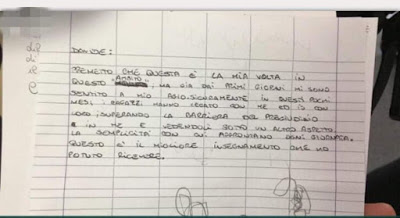 DAVIDE:
PREMETTO CHE QUESTA È LA MIA VOLTA IN
QUESTO AMBITO, MA GIÀ DAI PRIMI GIORNI MI SONO
SENTITO A MIO AGIO. SICURAMENTE IN QUESTI POCHI
MESI I RAGAZZI HANNO LEGATO CON ME ED IO CON
LORO, SUPERANDO LA BARRIERA DEL PREGIUDIZIO
IN ME E VEDENDOLI SOTTO UN ALTRO ASPETTO.
LA SEMPLICITÀ CON CUI AFFRONTANO OGNI GIORNATA.
QUESTO È IL MIGLIORE INSEGNAMENTO CHE HO
POTUTO RICEVERE.